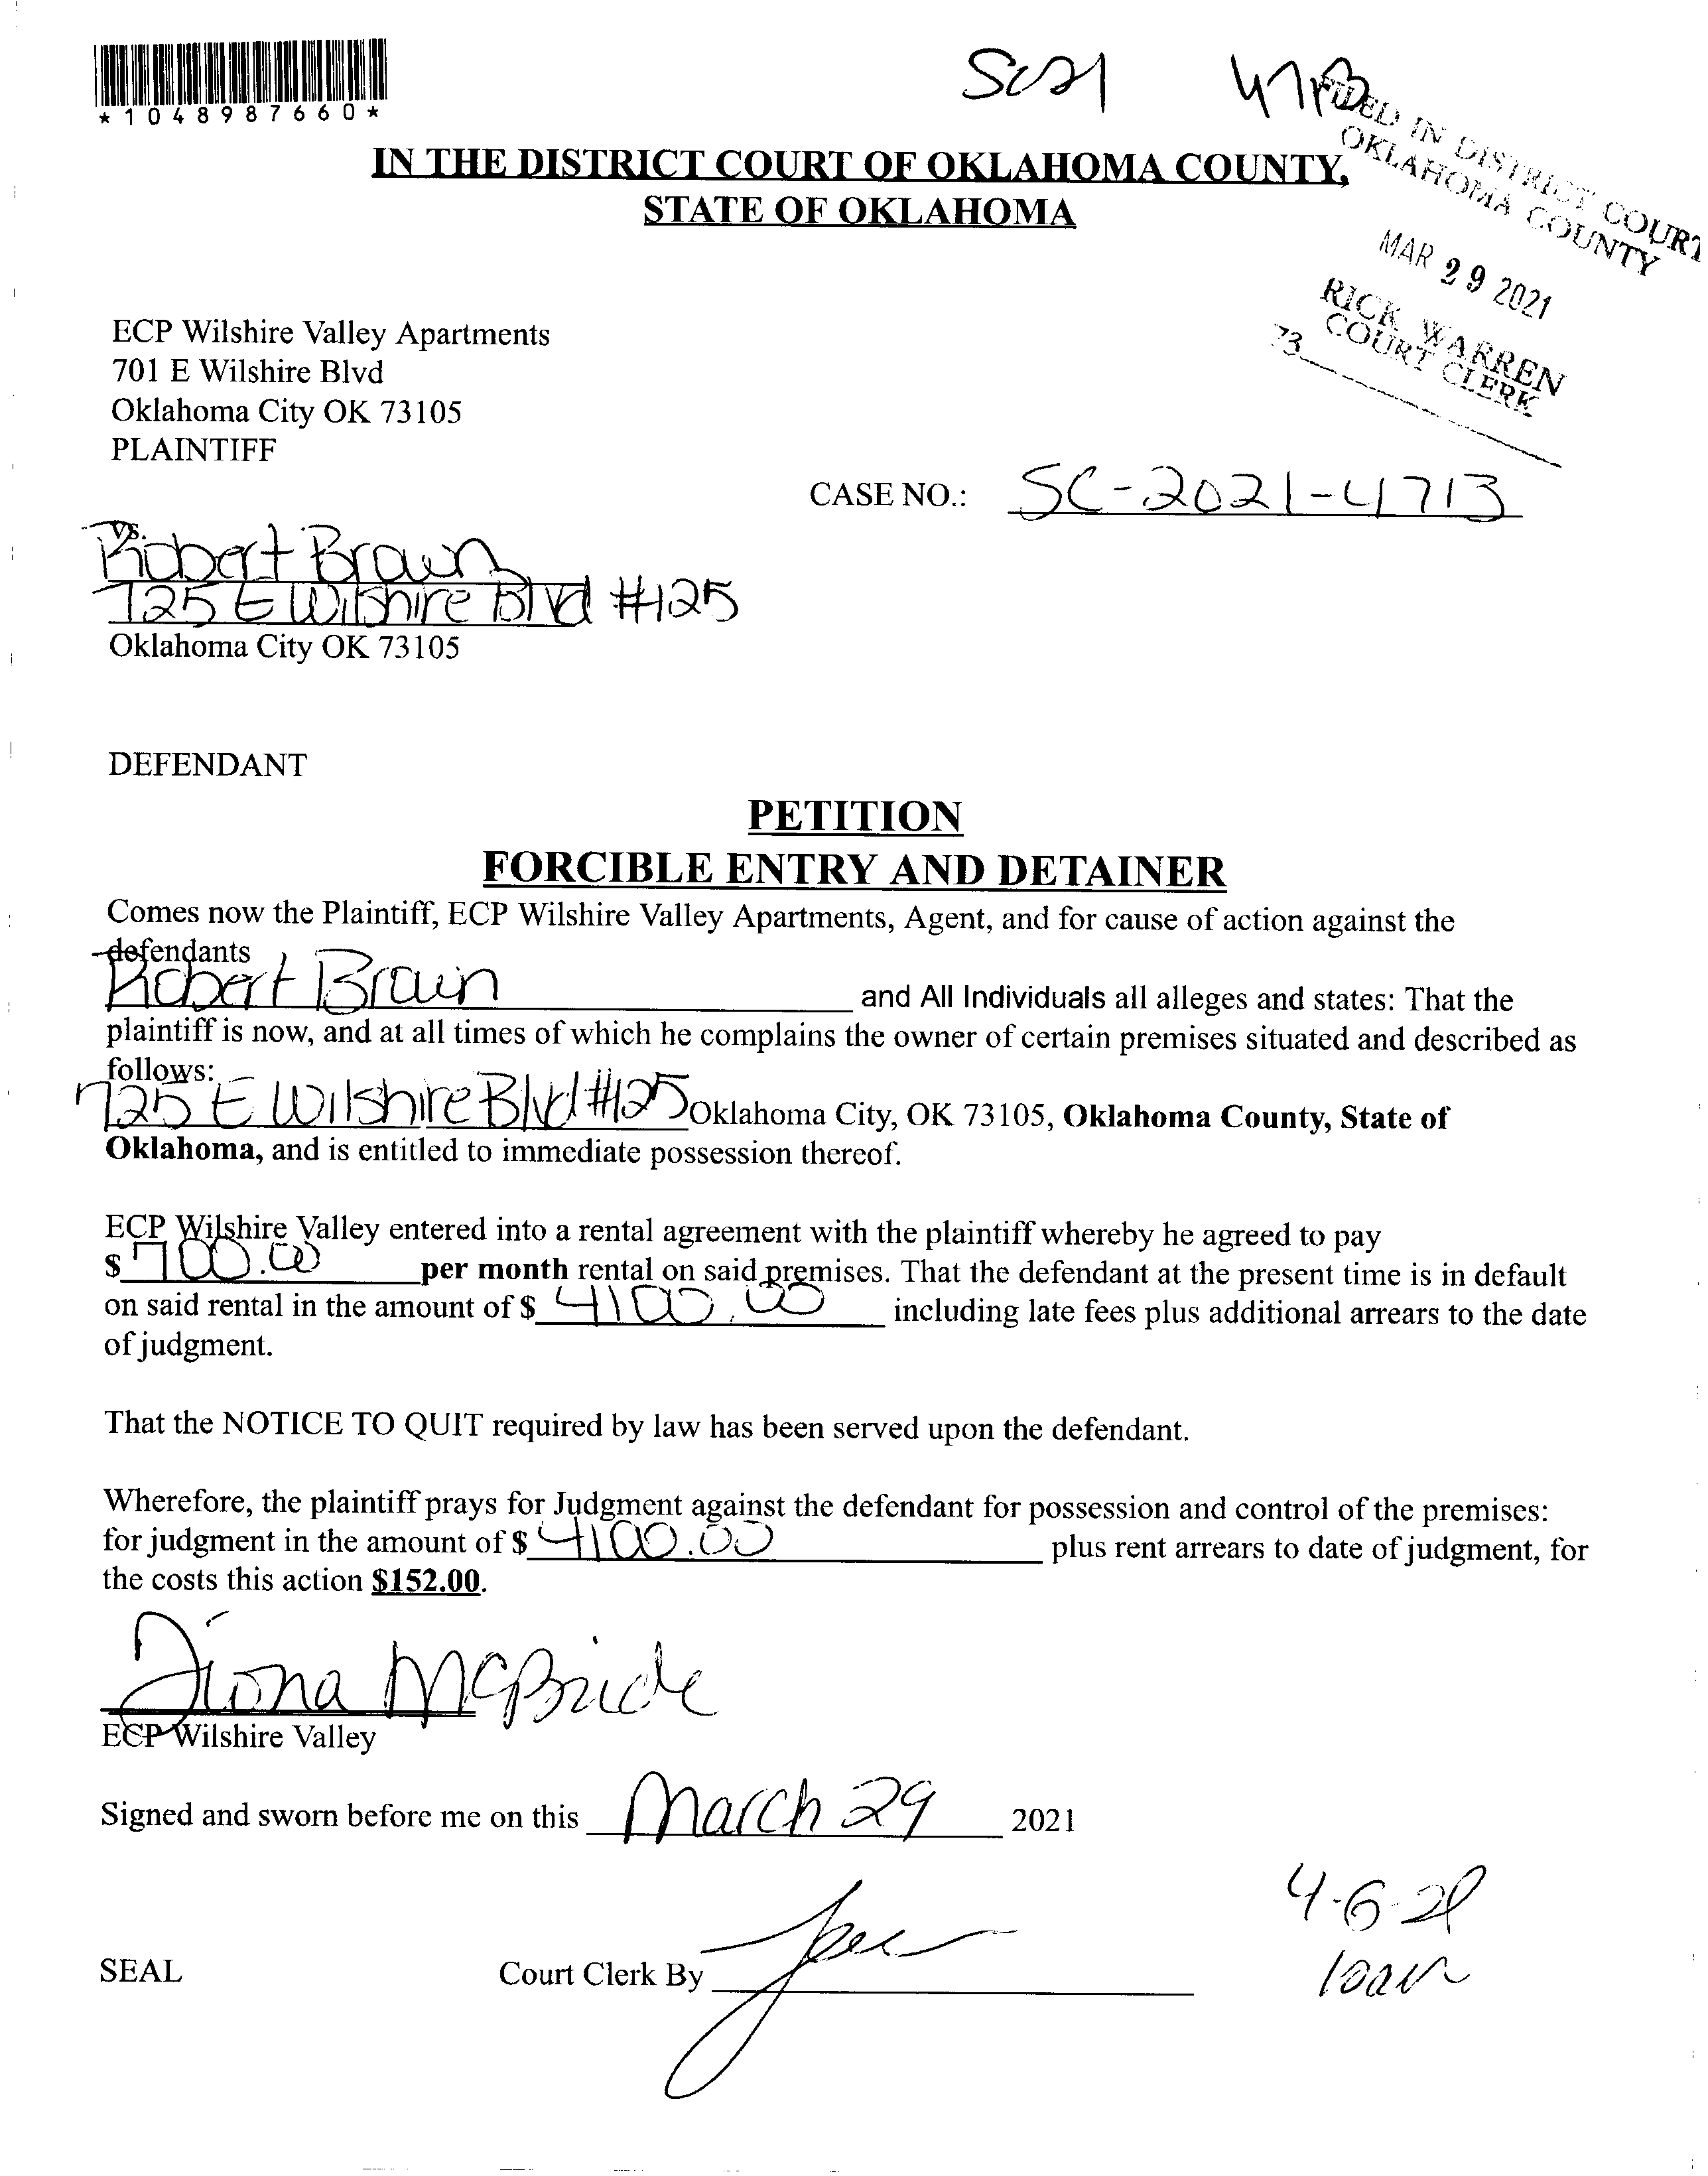 SC21 4713
*1048987660*
FILED IN DISTRICT COURT
OKLAHOMA COUNTY
IN THE DISTRICT COURT OF OKLAHOMA COUNTY,
STATE OF OKLAHOMA
MAR 29 2021
RICK WARREN
COURT CLERK
73
ECP Wilshire Valley Apartments
701 E Wilshire Blvd
Oklahoma City OK 73105
PLAINTIFF
CASE NO.: SC-2021-4713
vs.
Robert Brown
725 E Wilshire Blvd #125
Oklahoma City OK 73105
DEFENDANT
PETITION
FORCIBLE ENTRY AND DETAINER
Comes now the Plaintiff, ECP Wilshire Valley Apartments, Agent, and for cause of action against the
defendants
Robert Brown and All Individuals all alleges and states: That the
plaintiff is now, and at all times of which he complains the owner of certain premises situated and described as
follows:
725 E Wilshire Blvd #125 Oklahoma City, OK 73105, Oklahoma County, State of
Oklahoma, and is entitled to immediate possession thereof.
ECP Wilshire Valley entered into a rental agreement with the plaintiff whereby he agreed to pay
$ 700.00 per month rental on said premises. That the defendant at the present time is in default
on said rental in the amount of $ 4100.00 including late fees plus additional arrears to the date
of judgment.
That the NOTICE TO QUIT required by law has been served upon the defendant.
Wherefore, the plaintiff prays for Judgment against the defendant for possession and control of the premises:
for judgment in the amount of $ 4100.00 plus rent arrears to date of judgment, for
the costs this action $152.00.
Fiona McBride
ECP Wilshire Valley
Signed and sworn before me on this March 29 2021
4-6-21
SEAL Court Clerk By
10am